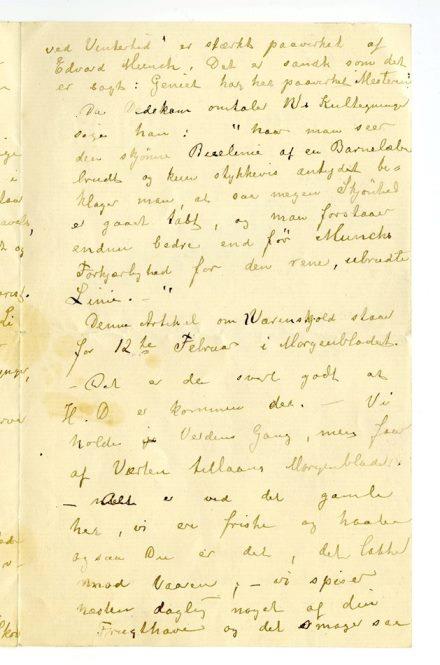 ved Vintertid" er stærkt paavirket af
Edvard Munch. Det er sandt som det
er sagt: Geniet har her paavirket Mesteren.
Da Dedekam omtaler Ws Kultegninger
siger han: "naar man seer
den skjønne Buelinie af en Barnelæbe
brudt og kun stykkevis antydet be-
klager man, at saa megen Skjønhed
er gaaet tabt, og man forstaar
endnu bedre end før Munchs
Forkjærlighed for den rene, ubrudte
Linie.-"
Denne Artikel om Warenskjold staar
for 12te Februar i Morgenbladet.
- Det er da svært godt at
H. D er kommen der. - Vi
holder jo Verdens Gang, men faar
af Værten tillaans Morgenbladet.
- Alt er ved det gamle
her, vi ere friske og haaber
ogsaa Du er det, det lakker
mod Vaaren; - vi spiser
næsten daglig noget af din
Frugthave og det smager saa